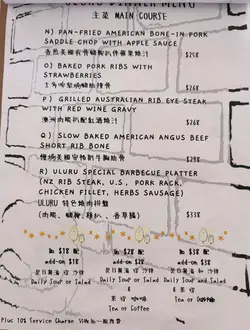 ULURU DINNER MENU
主菜 MAIN COURSE
N) PAN-FRIED AMERICAN BONE-IN PORK
SADDLE CHOP WITH APPLE SAUCE
$258
O) BAKED PORK RIBS WITH
STRAWBERRIES
$268
P) GRILLED AUSTRALIAN RIB EYE STEAK
WITH RED WINE GRAVY
澳洲肉眼扒配紅酒燒汁
$268
Q) SLOW BAKED AMERICAN ANGUS BEEF
SHORT RIB BONE
$298
R) ULURU SPECIAL BARBECUE PLATTER
(NZ RIB STEAK, U.S. PORK RACK,
CHICKEN FILLET, HERBS SAUSAGE)
ULURU 特色燒肉拼盤
$338
加 $18 配
add-on $18
是日餐湯 或 沙律
Daily Soup or Salad
加 $28 配
add-on $28
是日餐湯 或 沙律
Daily Soup or Salad
茶 或 咖啡
Tea or Coffee
加 $38 配
add-on $38
是日餐湯 和 沙律
Daily Soup and Salad
茶 或 咖啡
Tea or Coffee
Plus 10% Service Charge 另收加一服務費